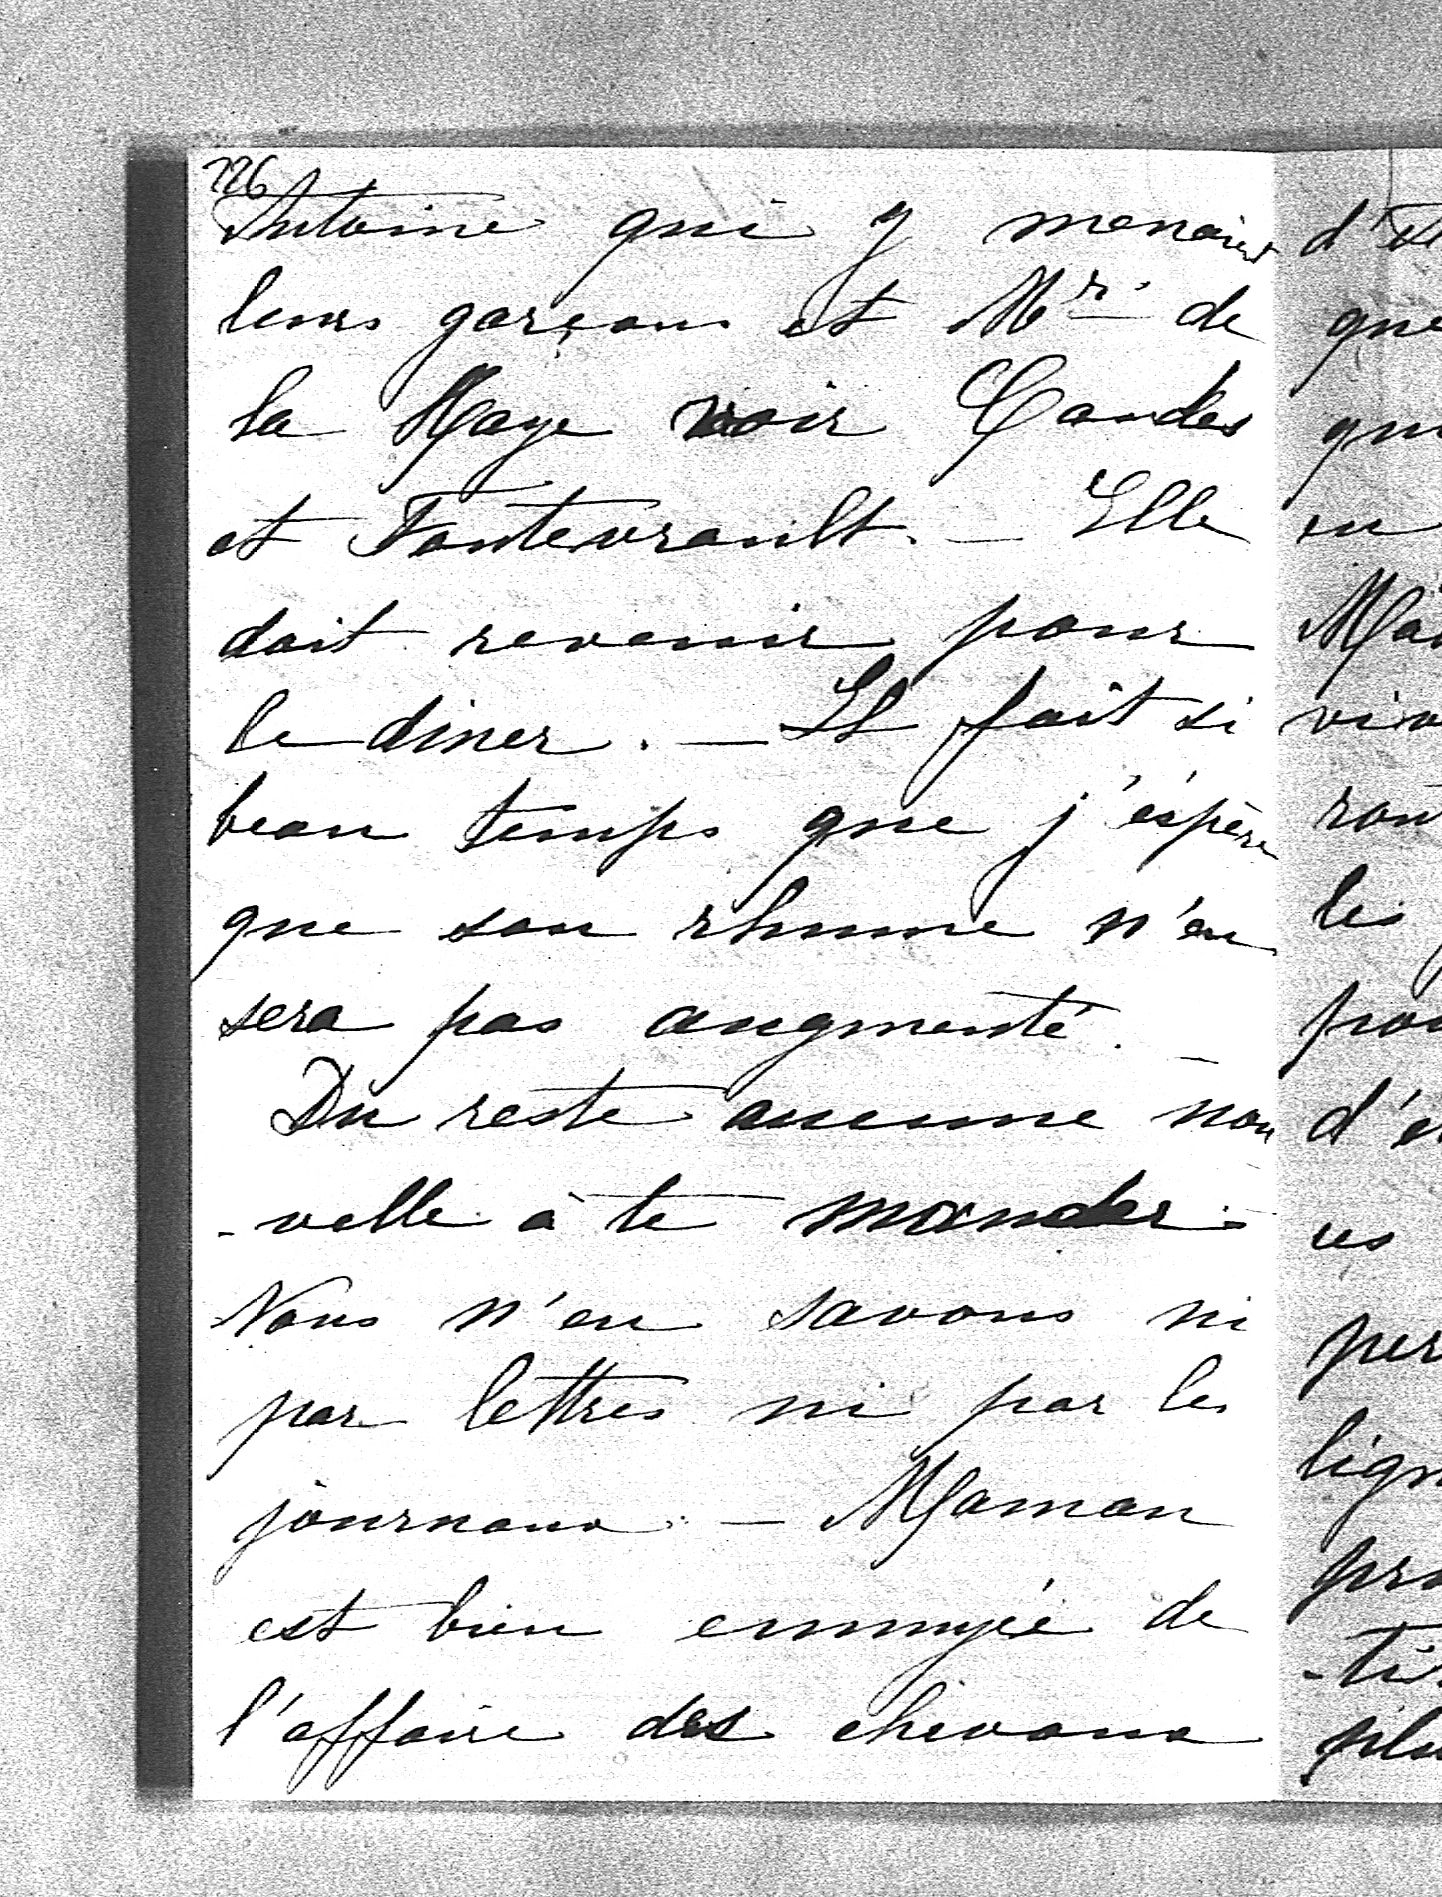 226
Antoine qui y menaient
leurs garçons et Mr. de
la Haye voir Candes
et Fontevrault. — Elle
doit revenir pour
le diner. — Il fait si
beau temps que j'éspère
que son rhume n'en
sera pas augmenté. —
Du reste aucune nou
-velle à te mander.
Nous n'en savons ni
par lettres ni par les
journaux. — Maman
est bien ennuyée de
l'affaire des chevaux
que
en
les
d'en